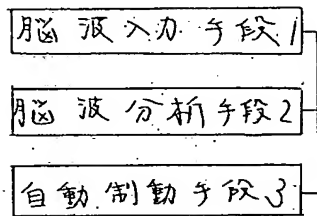 脳波入力手段1
脳波分析手段2
自動制動手段3